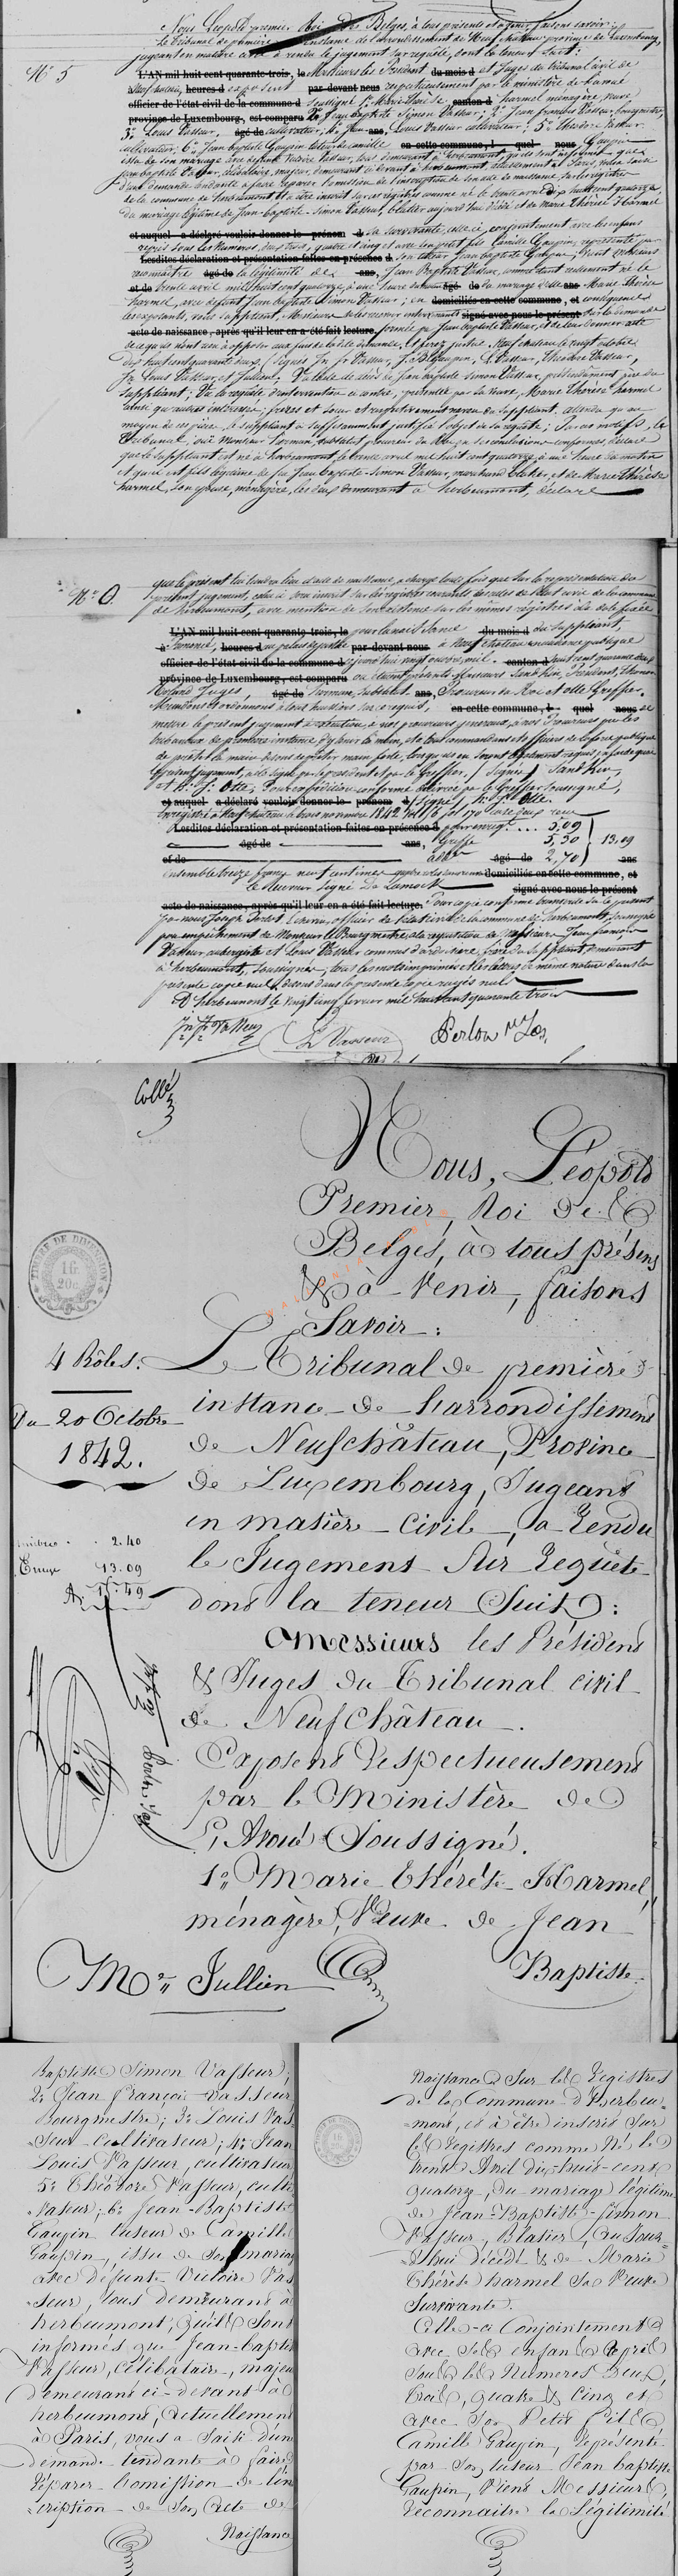 Nous Léopold premier Roi des Belges, à tous présents et à venir, faisons savoir:
Le tribunal de première instance de l'arrondissement de Neufchâteau province de Luxembourg,
jugeant en matière civile a rendu le jugement sur requête, dont la teneur suit:
N° 5
L'AN mil huit cent quarante-trois, le Messieurs les Président du mois d et Juges du tribunal civil de
Neufchâteau, heures d exposent par-devant nous respectueusement par le ministère de l'avoué
officier de l'état civil de la commune d soussigné 1° Marie Thérèse canton d harmel ménagère veuve
province de Luxembourg, est comparu de Jean baptiste Simon Vasseur; 2° Jean françois Vasseur, bourgmestre,
3° Louis Vasseur, âgé de cultivateur, 4° Jean ans, Louis Vasseur cultivateur; 5° Théodore Vasseur
cultivateur; 6° Jean baptiste Gaupin tuteur de Camille en cette commune, l quel nous Gaupin
issu de son mariage avec defunte Victoire Vasseur, tous demeurant à herbeumont, qu'ils sont informés que
Jean baptiste Vasseur, célibataire, majeur, demeurant ci-devant à herbeumont, actuellement à Paris, vous a saisi
d'une demande tendante à faire réparer l'omission de l'inscription de son acte de naissance sur les registres
de la commune de herbeumont et à être inscrit sur ces registres comme né le trente avril dix huit cent quatorze
du mariage légitime de Jean-baptiste Simon Vasseur, blatier aujourd'hui décédé et de Marie Thérèse Harmel
et auquel a déclaré vouloir donner le prénom d sa survivante, celle ci conjointement avec les enfans
repris sous les numéros deux, trois, quatre et cinq et avec son petit fils Camille Gaupin, représenté par
Lesdites déclaration et présentation faites en présence d son tuteur Jean baptiste Gaupin, vient Messieurs
reconnaître âgé de la légitimité de ans, Jean Baptiste Vasseur, comme étant réellement né le
et de trente avril mil huit cent quatorze, à une heure du matin âgé de du mariage d'elle ans Marie thérèse
harmel, avec défunt Jean baptiste Simon Vasseur; en domiciliés en cette commune, et conséquence
les exposants, vous supplient, Messieurs de les recevoir intervenants signé avec nous le présent sur la demande
acte de naissance, après qu'il leur en a été fait lecture, formée par Jean baptiste Vasseur, et de leur donner acte
de ce qu'ils n'ont rien à opposer aux fins de la dite demande, et ferez justice. Neufchateau le vingt octobre
dix huit cent quarante deux, signés Jn fr Vasseur, J. B. Gaupin, L. Vasseur, Théodore Vasseur,
Jn Louis Vasseur et Jullien. Vu l'acte de décès de Jean baptiste Simon Vasseur, prétendument père du
suppliant; Vu la requête d'intervention ci-contre, présentée par la veuve, Marie Thérèse harmel
ainsi qu'autres intéressés; frères et sœur et respectivement neveu du suppliant, attendu qu'au
moyen de ces pièces, le suppliant a suffisamment justifié l'objet de sa requête; Par ces motifs, le
Tribunal, ouï Monsieur Lorman, substitut procureur du Roi en ses conclusions conformes, déclare
que le suppliant est né à herbeumont, le trente avril mil huit cent quatorze, à une heure du matin
et qu'il est fils légitime de feu Jean baptiste-Simon Vasseur, marchand blatier, et de Marie thérèse
harmel, son épouse, ménagère, les deux demeurant à herbeumont, déclare
N° 0
que le présent lui tiendra lieu d'acte de naissance, à charge toute fois que sur la représentation du
présent jugement, celui ci sera inscrit sur les registres courants des actes de l'état civil de la commune
de herbeumont, avec mention de son existence sur les mêmes registres à la date fixée
L'AN mil huit cent quarante-trois, le pour la naissance du mois d du suppliant,
à Prononcé, heures d au palais de justice par-devant nous à Neufchâteau en audience publique
officier de l'état civil de la commune d ce jourd'hui vingt octobre mil canton d huit cent quarante deux
province de Luxembourg, est comparu où étaient présents Messieurs Sandkin, Président, Thomas
Juges, âgé de Lorman, Substitut ans, Procureur du Roi et Otte Greffier.
Mandons et ordonnons à tous huissiers sur ce requis, en cette commune, l quel nous de
mettre le présent jugement à exécution à nos procureurs généraux, à nos Procureurs près les
tribunaux de première instance d'y tenir la main, et à tous commandans et officiers de la force publique
de prêter main forte, lorsqu'ils en seront légalement requis, en foi de quoi
le présent jugement, a été signé par le président et par le Greffier. / Signé / Sandkin,
et H. J. Otte; Pour expédition conforme délivrée par le Greffier soussigné,
et auquel a déclaré vouloir donner le prénom d /Signé/ H. J. Otte.
Enregistré à Neufchâteau le trois novembre 1842 Vol 16 fol 170 case deux reçu
Lesdites déclaration et présentation faites en présence d pour enregt. ... 5,09
âgé de ans, Greffe 5,30 13,09
et de addn âgé de 2,70 ans
Ensemble treize francs neuf centimes domiciliés en cette commune, et
le Receveur signé De Lamock signé avec nous le présent
acte de naissance, après qu'il leur en a été fait lecture. Pour copie conforme transcrite sur le présent
par nous Joseph Perlot Echevin, officier de l'état civil de la commune de herbeumont, soussigné
pour empêchement de Monsieur le Bourgmestre à la réquisition de Messieurs Jean françois
Vasseur aubergiste et Louis Vasseur commis d'ardoisière, frères du suppliant, demeurant
à herbeumont, soussignés, tous les mots imprimés et les lettres de même nature dans la
présente copie nuls dessous dans la présente copie rayés nuls
D'herbeumont le vingt cinq février mil huit cent quarante trois
Jn. Fr. Vasseur L Vasseur Perlot
Collé
Nous, Léopold
Premier, Roi des
Belges, à tous présens
& à venir, faisons
Savoir:
WALLONIA
TIMBRE DE DIMENSION
4 Rôles.
Du 20 Octobre
1842.
Le Tribunal de première
instance de l'arrondissement
de Neufchâteau, Province
de Luxembourg, Jugeant
en matière civile, a rendu
le Jugement sur requête
dont la teneur suit:
timbre 2.40
Enregt 13.09
15.49
Messieurs les Président
& Juges du Tribunal civil
de Neufchâteau.
Exposent respectueusement
par le Ministère de
L'Avoué Soussigné.
1° Marie Thérèse Harmel,
ménagère, Veuve de Jean
Baptiste
Me Jullien
Baptiste Simon Vasseur,
2° Jean françois Vasseur
Bourgmestre; 3° Louis Vas-
seur cultivateur; 4° Jean
Louis Vasseur, cultivateur
5° Théodore Vasseur, culti-
vateur; 6° Jean-Baptiste
Gaupin tuteur de Camille
Gaupin, issu de son mariage
avec défunte Victoire Vas-
seur, tous demeurant à
herbeumont, qu'ils sont
informés que Jean-baptiste
Vasseur, célibataire, majeur
demeurant ci-devant à
herbeumont, actuellement
à Paris, vous a saisi d'une
demande tendante à faire
réparer l'omission de l'ins-
cription de son acte de
Naissance
Naissance sur les registres
de la Commune d'Herbeu-
mont, et à être inscrit sur
ces registres comme né le
trente Avril dix-huit-cent
quatorze, du mariage légitime
de Jean-Baptiste-Simon
Vasseur, Blatier, aujour-
d'hui décédé & de Marie
Thérèse harmel sa Veuve
Survivante.
Celle-ci Conjointement
avec ses enfans repris
sous les Numéros Deux,
trois, quatre & cinq et
avec son petit fils
Camille Gaupin, représenté
par son tuteur Jean baptiste
Gaupin, vient Messieurs,
reconnaitre la Légitimité